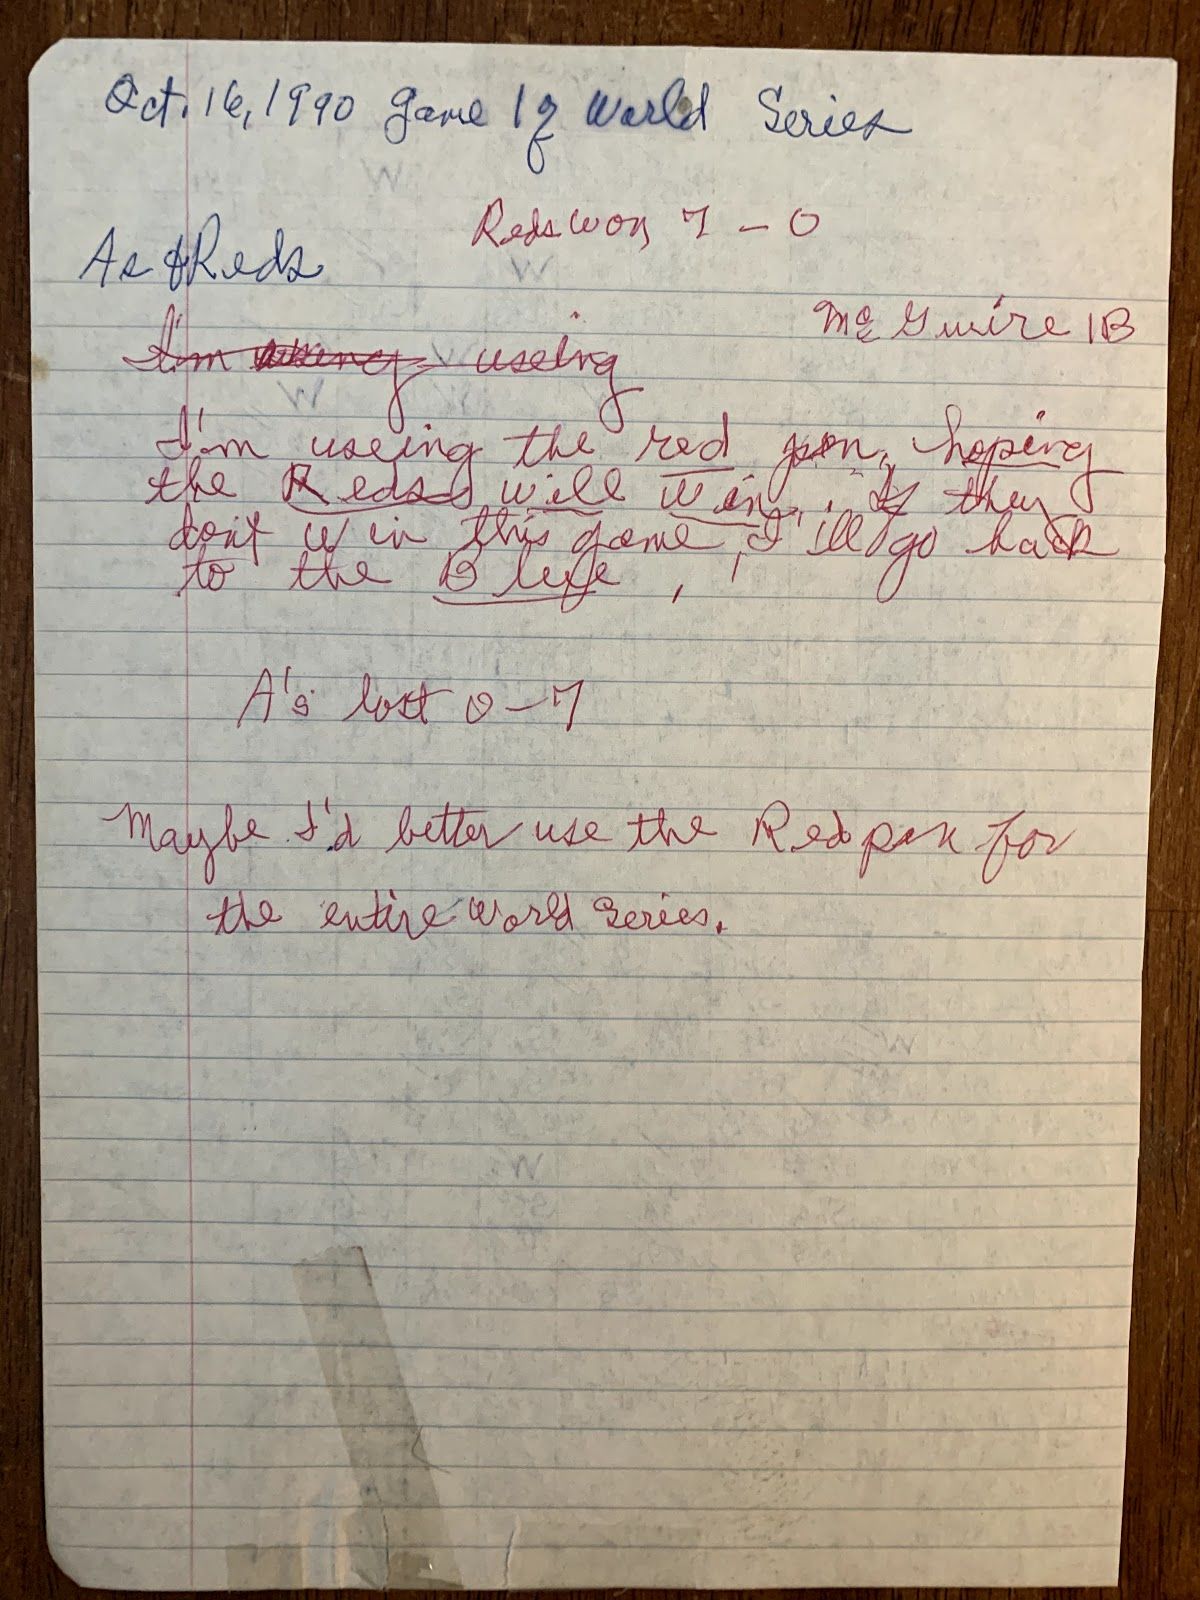 Oct. 16, 1990 Game 1 of World Series
Reds won 7 - 0
As & Reds
McGwire 1B
I'm useing useing
I'm useing the red pen, hoping
the Reds will win. If they
don't win this game, I'll go back
to the Blue,
A's lost 0-7
Maybe I'd better use the Red pen for
the entire World Series.